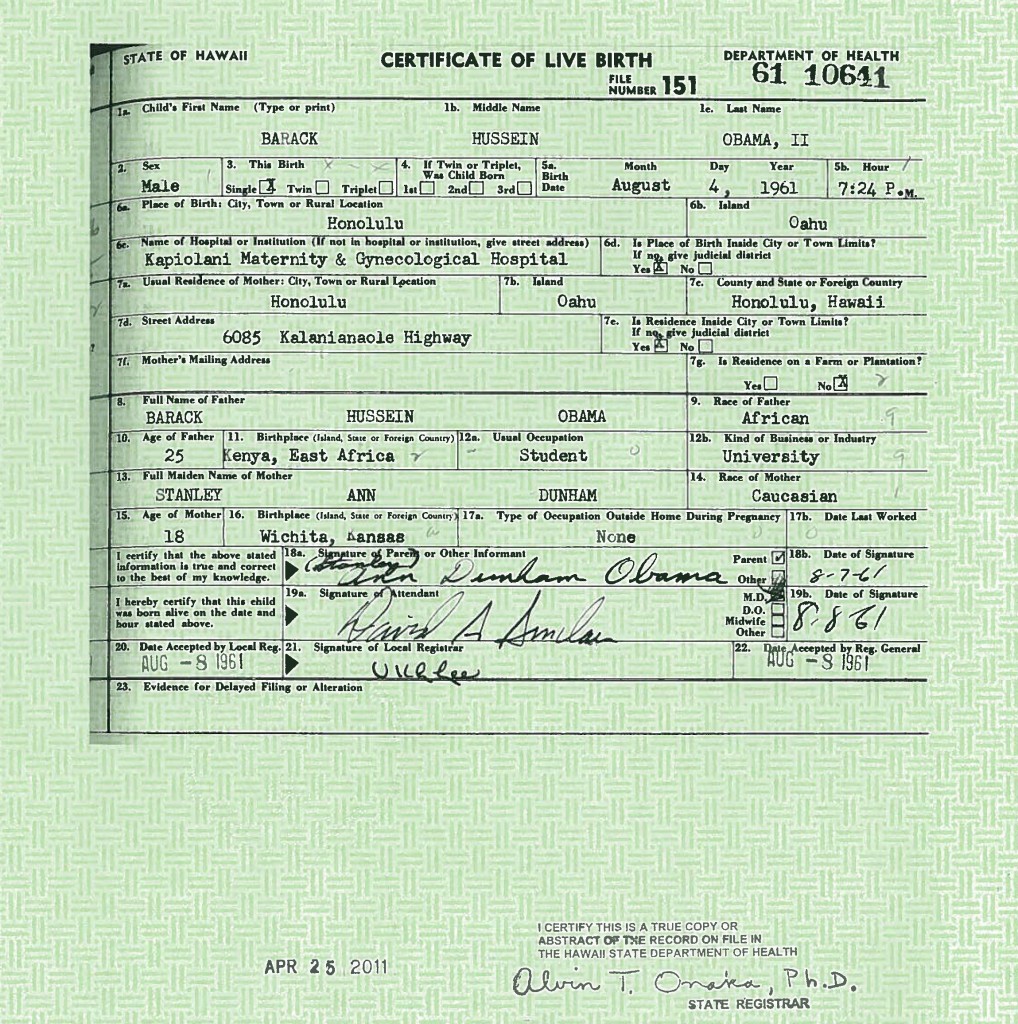 STATE OF HAWAII CERTIFICATE OF LIVE BIRTH DEPARTMENT OF HEALTH
FILE NUMBER 151 61 10641
1a. Child's First Name (Type or print) 1b. Middle Name 1c. Last Name
BARACK HUSSEIN OBAMA, II
2. Sex 3. This Birth 4. If Twin or Triplet, Was Child Born 5a. Birth Date Month Day Year 5b. Hour
Male Single X Twin Triplet 1st 2nd 3rd August 4, 1961 7:24 P.M.
6a. Place of Birth: City, Town or Rural Location 6b. Island
Honolulu Oahu
6c. Name of Hospital or Institution (If not in hospital or institution, give street address) 6d. Is Place of Birth Inside City or Town Limits?
If no, give judicial district
Kapiolani Maternity & Gynecological Hospital Yes X No
7a. Usual Residence of Mother: City, Town or Rural Location 7b. Island 7c. County and State or Foreign Country
Honolulu Oahu Honolulu, Hawaii
7d. Street Address 7e. Is Residence Inside City or Town Limits?
If no, give judicial district
6085 Kalanianaole Highway Yes X No
7f. Mother's Mailing Address 7g. Is Residence on a Farm or Plantation?
Yes No X
8. Full Name of Father 9. Race of Father
BARACK HUSSEIN OBAMA African 9
10. Age of Father 11. Birthplace (Island, State or Foreign Country) 12a. Usual Occupation 12b. Kind of Business or Industry
25 Kenya, East Africa Student 0 University 9
13. Full Maiden Name of Mother 14. Race of Mother
STANLEY ANN DUNHAM Caucasian 1
15. Age of Mother 16. Birthplace (Island, State or Foreign Country) 17a. Type of Occupation Outside Home During Pregnancy 17b. Date Last Worked
18 Wichita, Kansas None
I certify that the above stated information is true and correct to the best of my knowledge. 18a. Signature of Parent or Other Informant Parent Other 18b. Date of Signature
(Stanley) Ann Dunham Obama 8-7-61
I hereby certify that this child was born alive on the date and hour stated above. 19a. Signature of Attendant M.D. D.O. Midwife Other 19b. Date of Signature
David A Sinclair 8-8-61
20. Date Accepted by Local Reg. 21. Signature of Local Registrar 22. Date Accepted by Reg. General
AUG -8 1961 AUG -8 1961
23. Evidence for Delayed Filing or Alteration
APR 25 2011
I CERTIFY THIS IS A TRUE COPY OR
ABSTRACT OF TXE RECORD ON FILE IN
THE HAWAII STATE DEPARTMENT OF HEALTH
Alvin T. Onaka, Ph.D.
STATE REGISTRAR